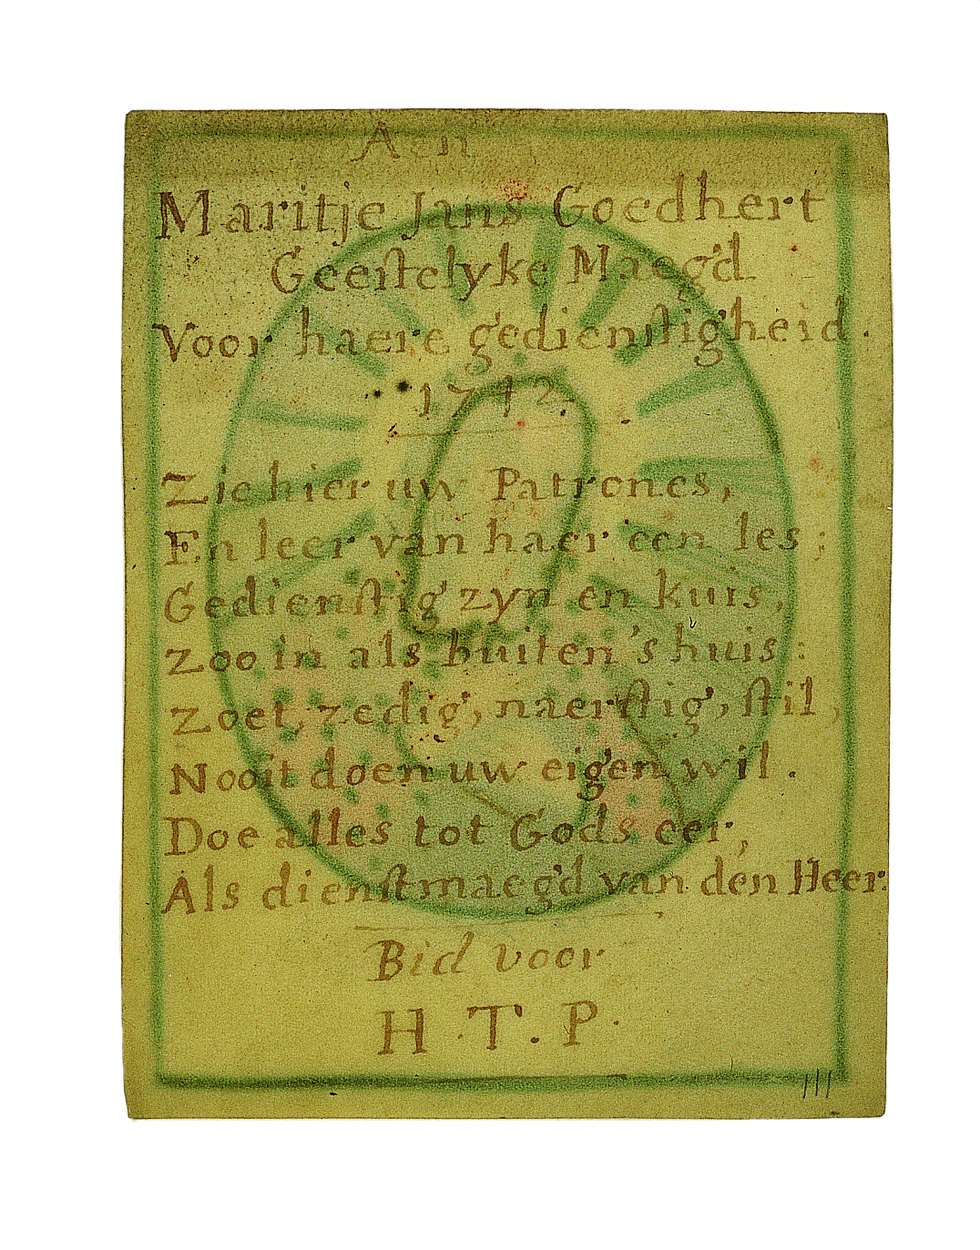 Aen
Maritje Jans Goedhert
Geestelyke Maegd
Voor haere gedienstigheid.
1742.
Zie hier uw Patrones,
En leer van haer een les;
Gedienstig zyn en kuis,
Zoo in als buiten 's huis:
Zoet, zedig, naerstig, stil,
Nooit doen uw eigen wil.
Doe alles tot Gods eer,
Als dienstmaegd van den Heer.
Bid voor
H.T.P.
111